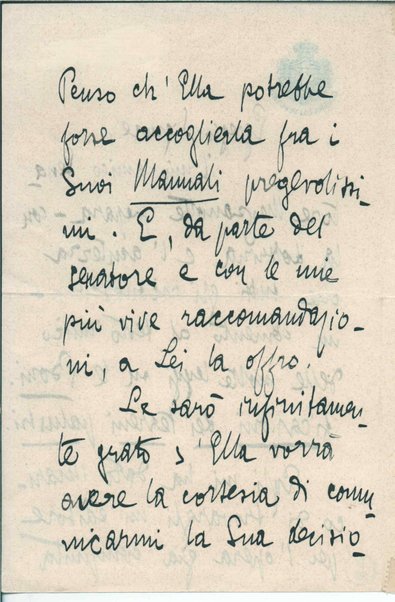 Penso ch'Ella potrebbe
forse accoglierla fra i
Suoi Manuali pregevolissi-
mi. E, da parte del
senatore e con le mie
più vive raccomandazio-
ni, a Lei la offro.
Le sarò infinitamen-
te grato s'Ella vorrà
avere la cortesia di comu-
nicarmi la Sua decisio-